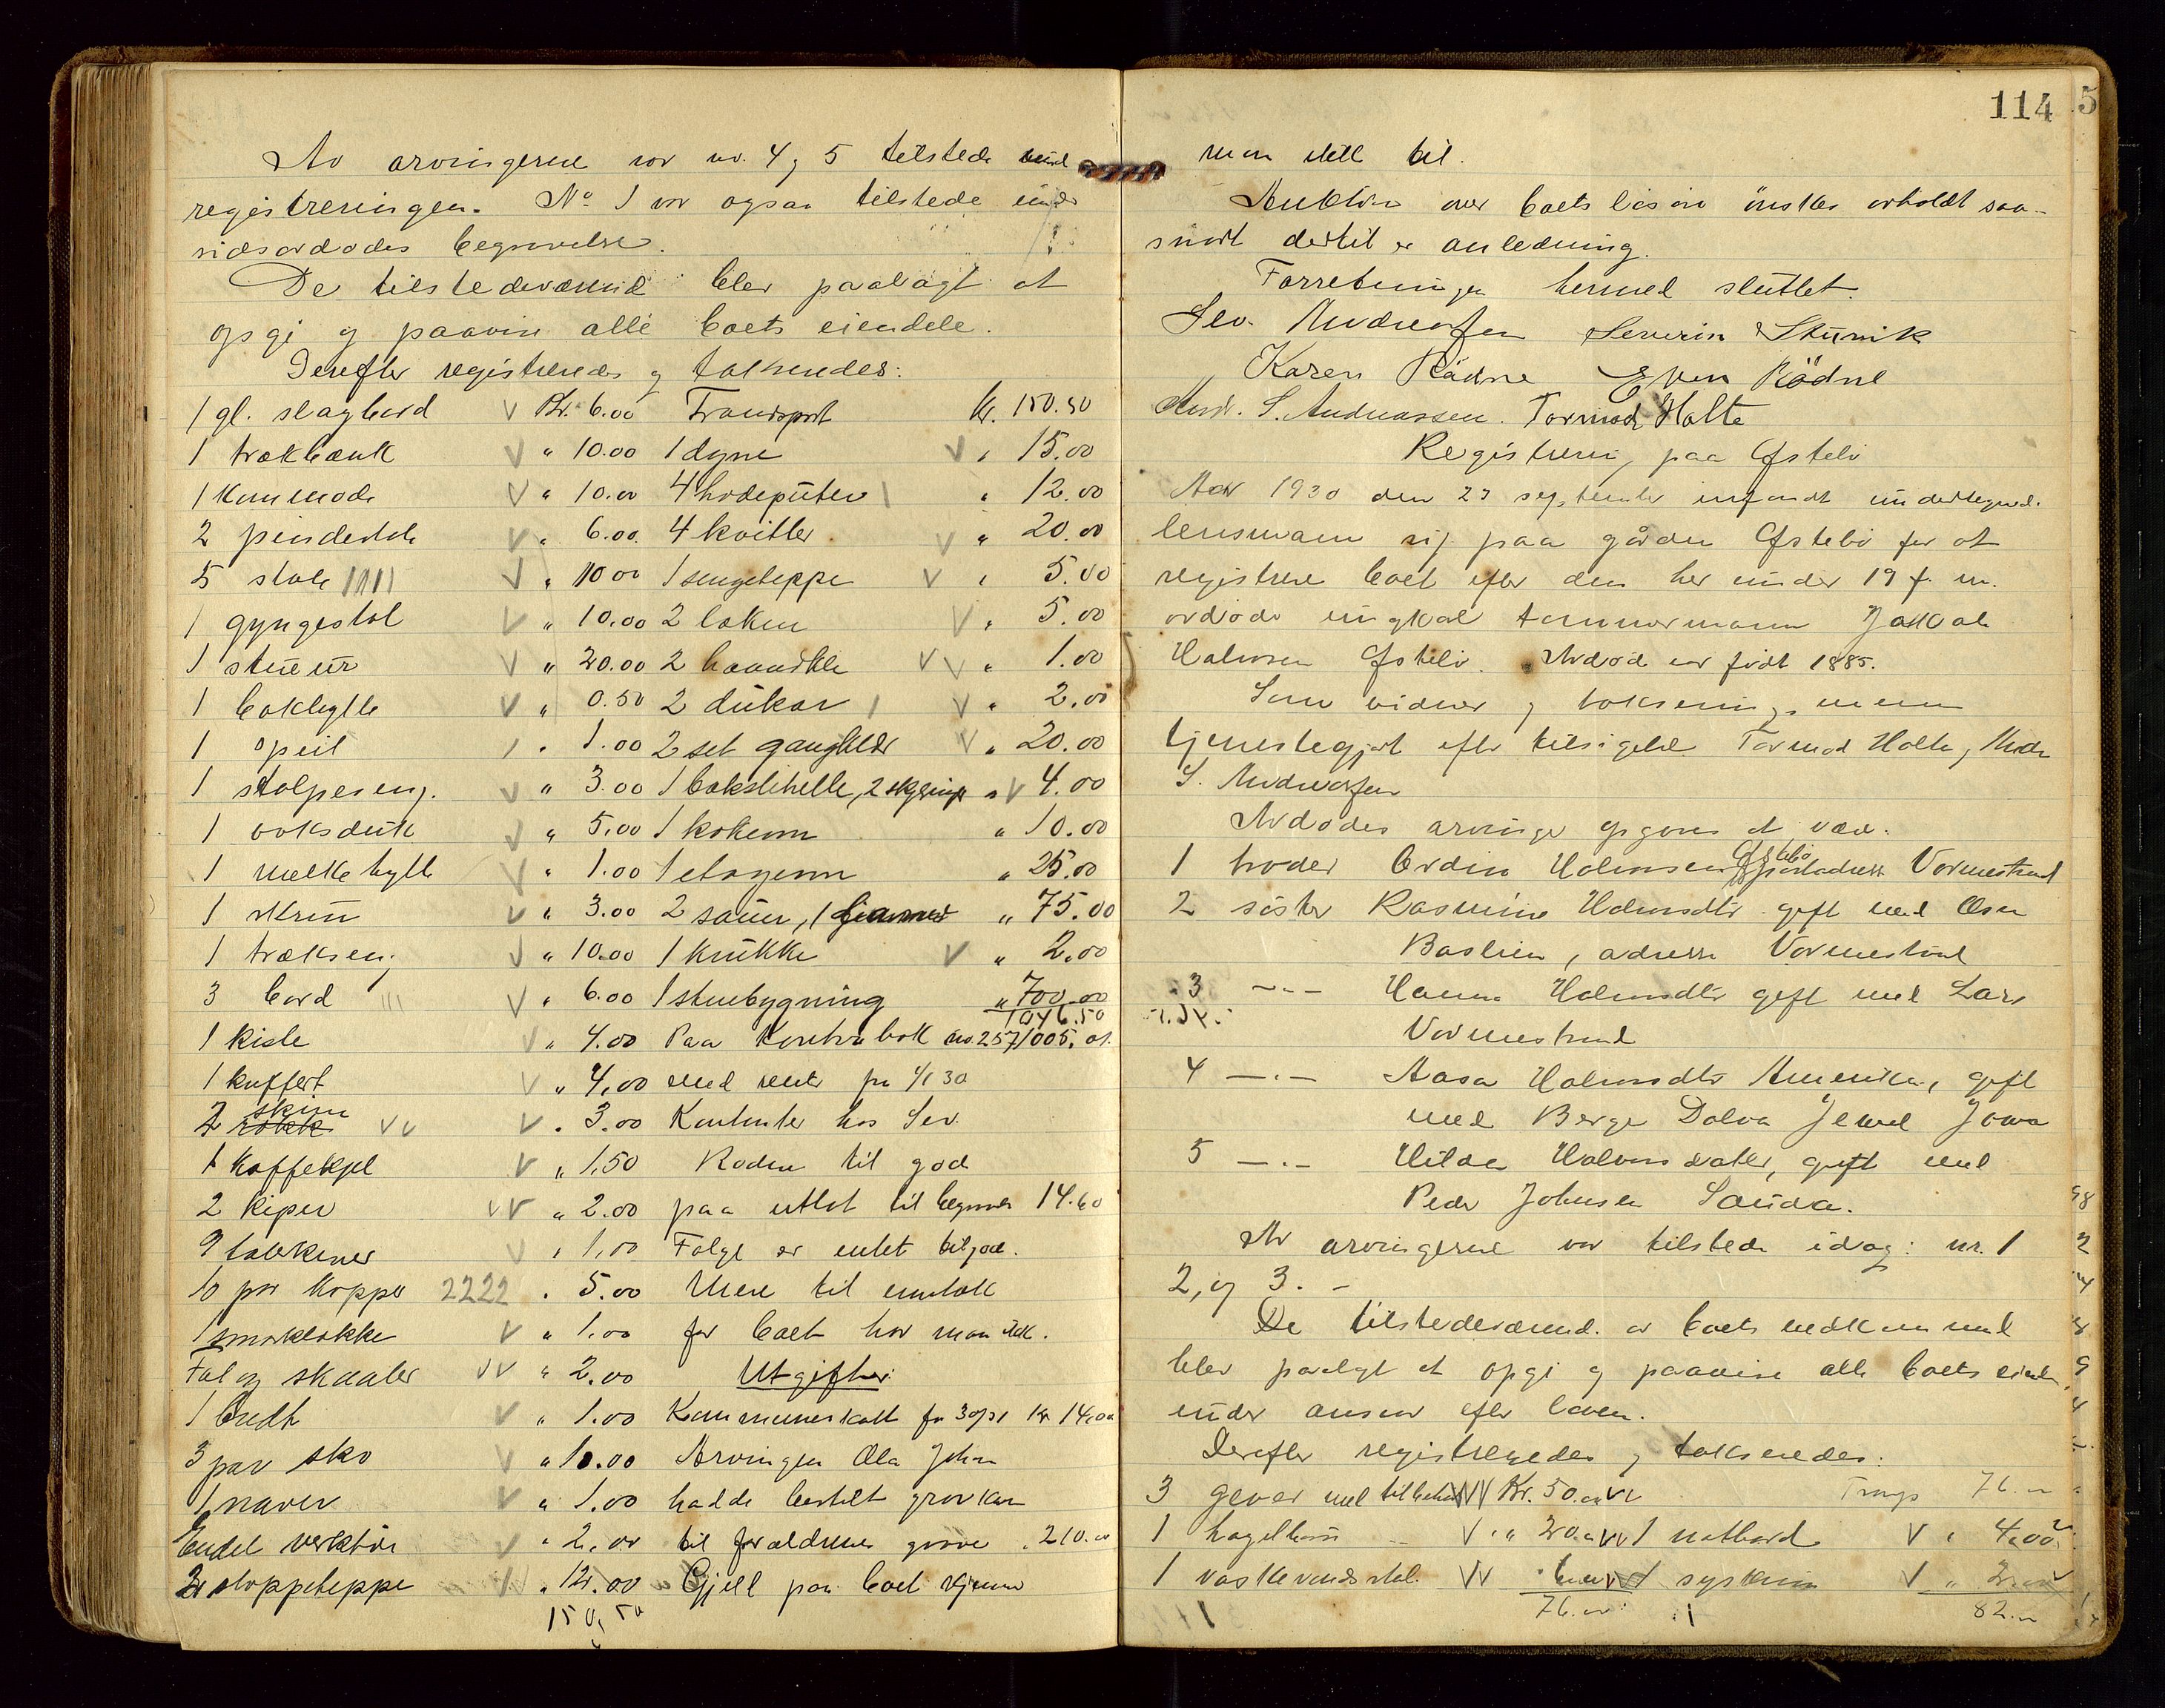 Av arvingerne var nr. 4 og 5 tilstede ved
registreringen. No 1 var ogsaa tilstede under
avdødes begravelse.
De tilstedeværend blev paalagt at
opgi og paavise alle boets eiendele.
Derefter registreredes og taksredes:
1 gl. slagbord V Kr. 6.00
1 trækbænk V " 10.00
1 Kommode V " 10.00
2 pindestole V " 6.00
5 stole V " 10 00
1 gyngestol V " 10.00
1 stueur V " 20.00
1 bokhylle V " 0.50
1 speil " 1.00
1 stolpeseng. V " 3.00
1 voksduk V " 5.00
1 melkehylle V " 1.00
1 skrin V " 3.00
1 trækseng V " 10.00
3 bord V " 6.00
1 kiste V " 4.00
1 kuffert V " 4.00
2 rokk skrin V V V " 3.00
1 Kaffekjel V " 1,50
2 kiper V V " 2.00
9 talerkener V " 1,00
10 par kopper 2222 " 5.00
1 smørklokke V " 1.00
Fat og skaaler VV " 2.00
1 brett V " 1.00
3 par sko V " 10.00
1 naver V " 1.00
Endel verktøi V " 2.00
2 stoppeteppe " 12.00
150,50
Transport Kr. 150.50
1 dyne V " 15.00
4 hodeputer " 12.00
4 kvitler V " 20.00
1 sengeteppe V " 5.00
2 laken V " 5.00
2 haandklæ V V " 1.00
2 dukar V " 2.00
2 set gangklær V " 20.00
1 bakstehelle, 2 " V 4.00
1 kokeovn " 10.00
1 etageovn " 25.00
2 sauer, 1 " 75.00
1 krukke V " 2.00
1 stuebygning " 700.00
1046.50
Paa Kontrabok no 257 1005.01.
med renter fra 1/1 30
Kontanter hos Sev.
Rødne til gode
paa utlot til begravelse 14.60
Følge er intet tilgode.
Mere til inntekt
for boet har man ikke.
Utgifter:
Kommuneskatt for 30/31 Kr 14,00
Arvingen Ola John
hadde bestilt gravkar
til forældrenes grave " 210.00
Gjeld paa boet kjenner
114
man ikke til.
Auktion over boets løsøre ønskes avholdt saa-
snart dertil er anledning.
Forretningen hermed sluttet.
Sev. Andreassen Severin Stumik
Karen Rödne Even Rödne
Andr. S. Andreassen. Tormod Holte
Registrering paa Østebø
Aar 1930 den 23 september innfandt undertegned.
lensmann sig paa gården Østebø for at
registrere boet efter den her under 19 f. m.
avdøde ungkar tømmermann Jakob
Halvorsen Østebø. Avdød var født 1885.
Som vidner og takseringsmenn
tjenestegjort efter tilsigelse Tormod Holte, Andr
S. Andreassen
Avdødes arvinger opgaves at være:
1 broder Ordin Halvorsen Østebø postadress Vormestrand
2 søster Rasmine Halvorsdtr gift med Osm
Bastlien, adresse Vormestrand
3 — " — Hanna Halvorsdtr gift med Lars
Vormestrand
4 — " — Aasa Halvorsdtr Amerika, gift
med Berge Dalva Jewel Jowa
5 — " — Hilda Halvorsdatter, gift med
Peder Johnsen Sauda.
Av arvingerne var tilstede idag: nr. 1
2, og 3. –
De tilstedeværend. av boets vedkommend
blev paalagt at opgi og paavise alle boets eiendele
under ansvar efter loven.
Derefter registreredes og takseredes:
3 gevær med tilbehør VVV Kr. 50.00
1 haglbøsse V " 20.00
1 vaskevandsstel VV " 6.00
76.00
Transp 76.00
1 nattbord V " 4.00
1 syskrin V " 2.00
82.00